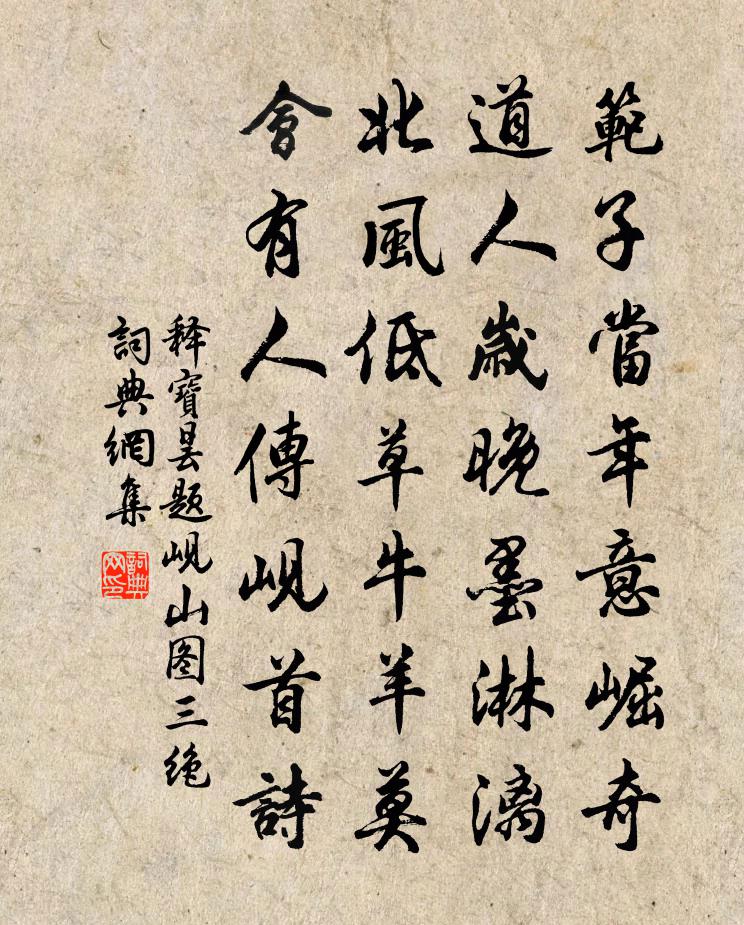 範子當年意崛奇
道人歲晚墨淋漓
北風低草牛羊莫
會有人傳峴首詩
释寶曇题峴山图三绝
詞典網集
詞典网印